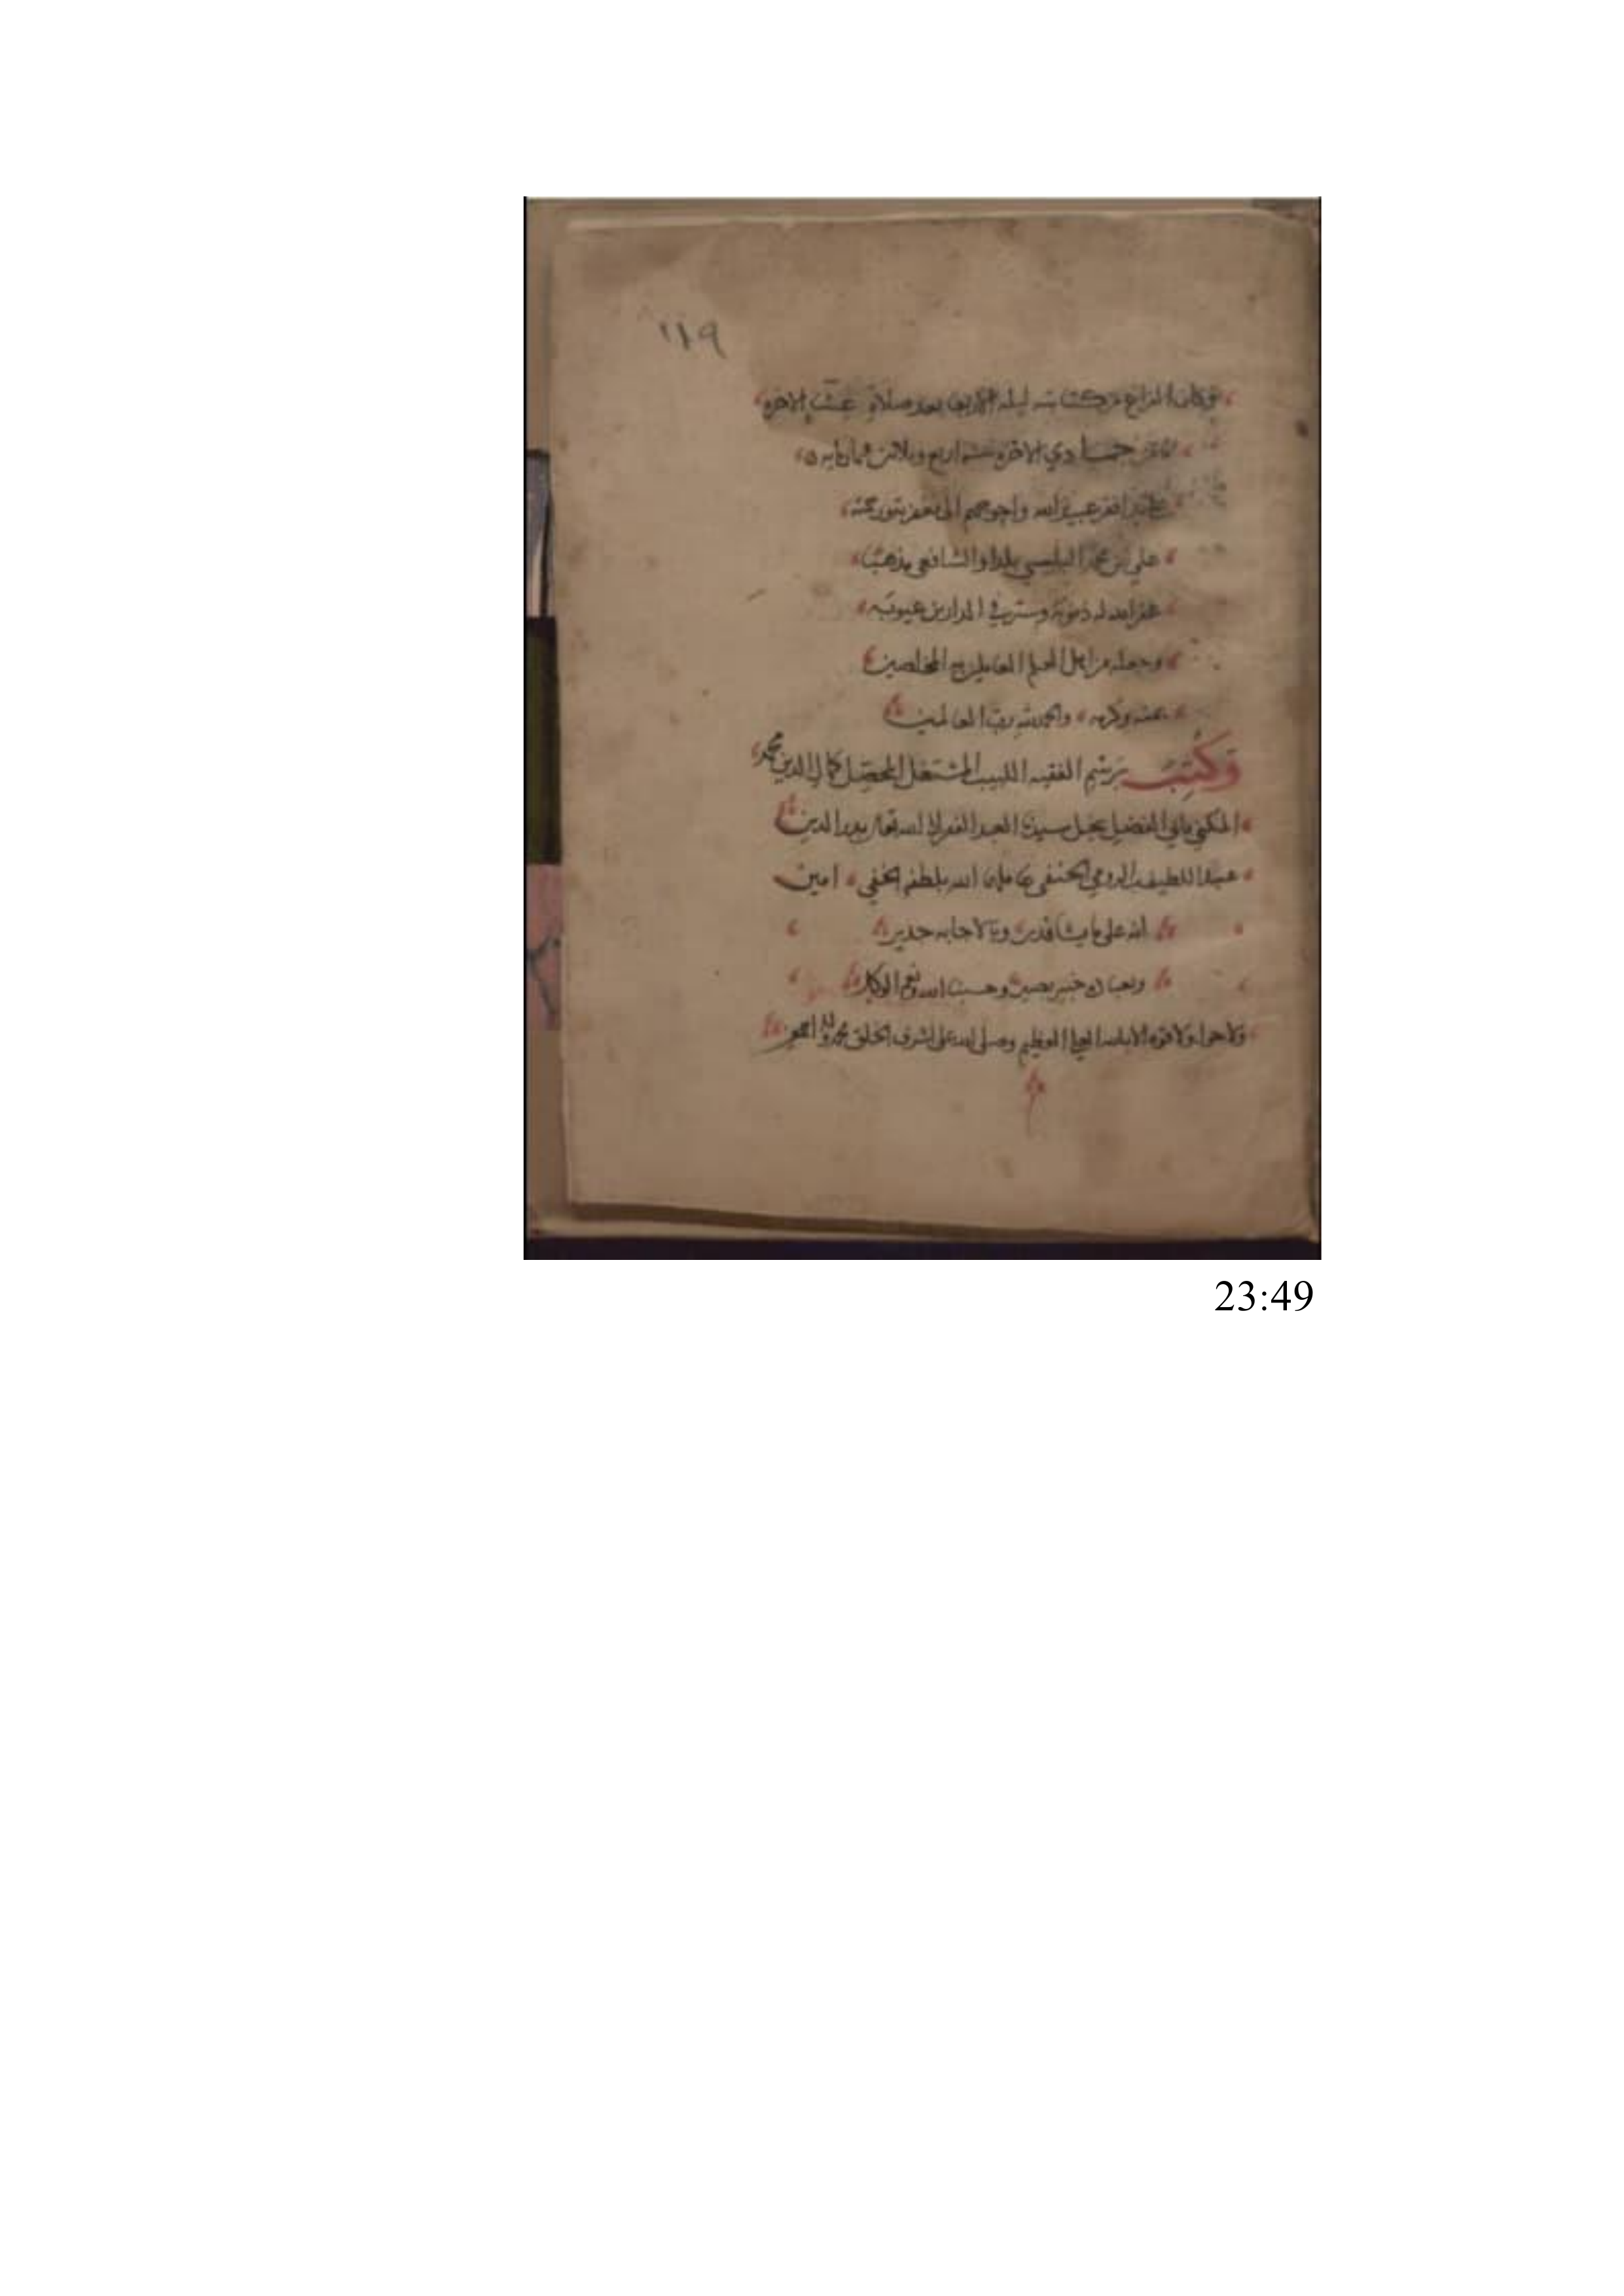 ١١٩
وكان الفراغ من كتابته ليلة الاربعا بعد صلاة عشا الاخرة
جمادي الاخرة سنة اربع وثلاثين وثمان مايه
افقر عبيد الله واحوجهم الى
علي بن محمد البلبيسي بلدا والشافعي مذهبا
غفر الله له ذنوبه وستر في الدارين عيوبه
وجعله من اهل العلم العاملين المخلصين
بمنه وكرمه والحمد لله رب العالمين
وكتب برسم الفقيه اللبيب المشتغل المحصل كمال الدين محمد
المكني بابي الفضل نجل سيدنا العبد الفقير الى الله تعالى بدر الدين
عبد اللطيف الرومي الحنفي عاملها الله بلطفه الخفي امين
انه على ما يشا قدير وبالاجابه جدير
خبير بصير وحسبنا الله ونعم الوكيل
ولا حول ولا قوة الا بالله العلي العظيم وصلى الله على اشرف الخلق محمد واله
23:49